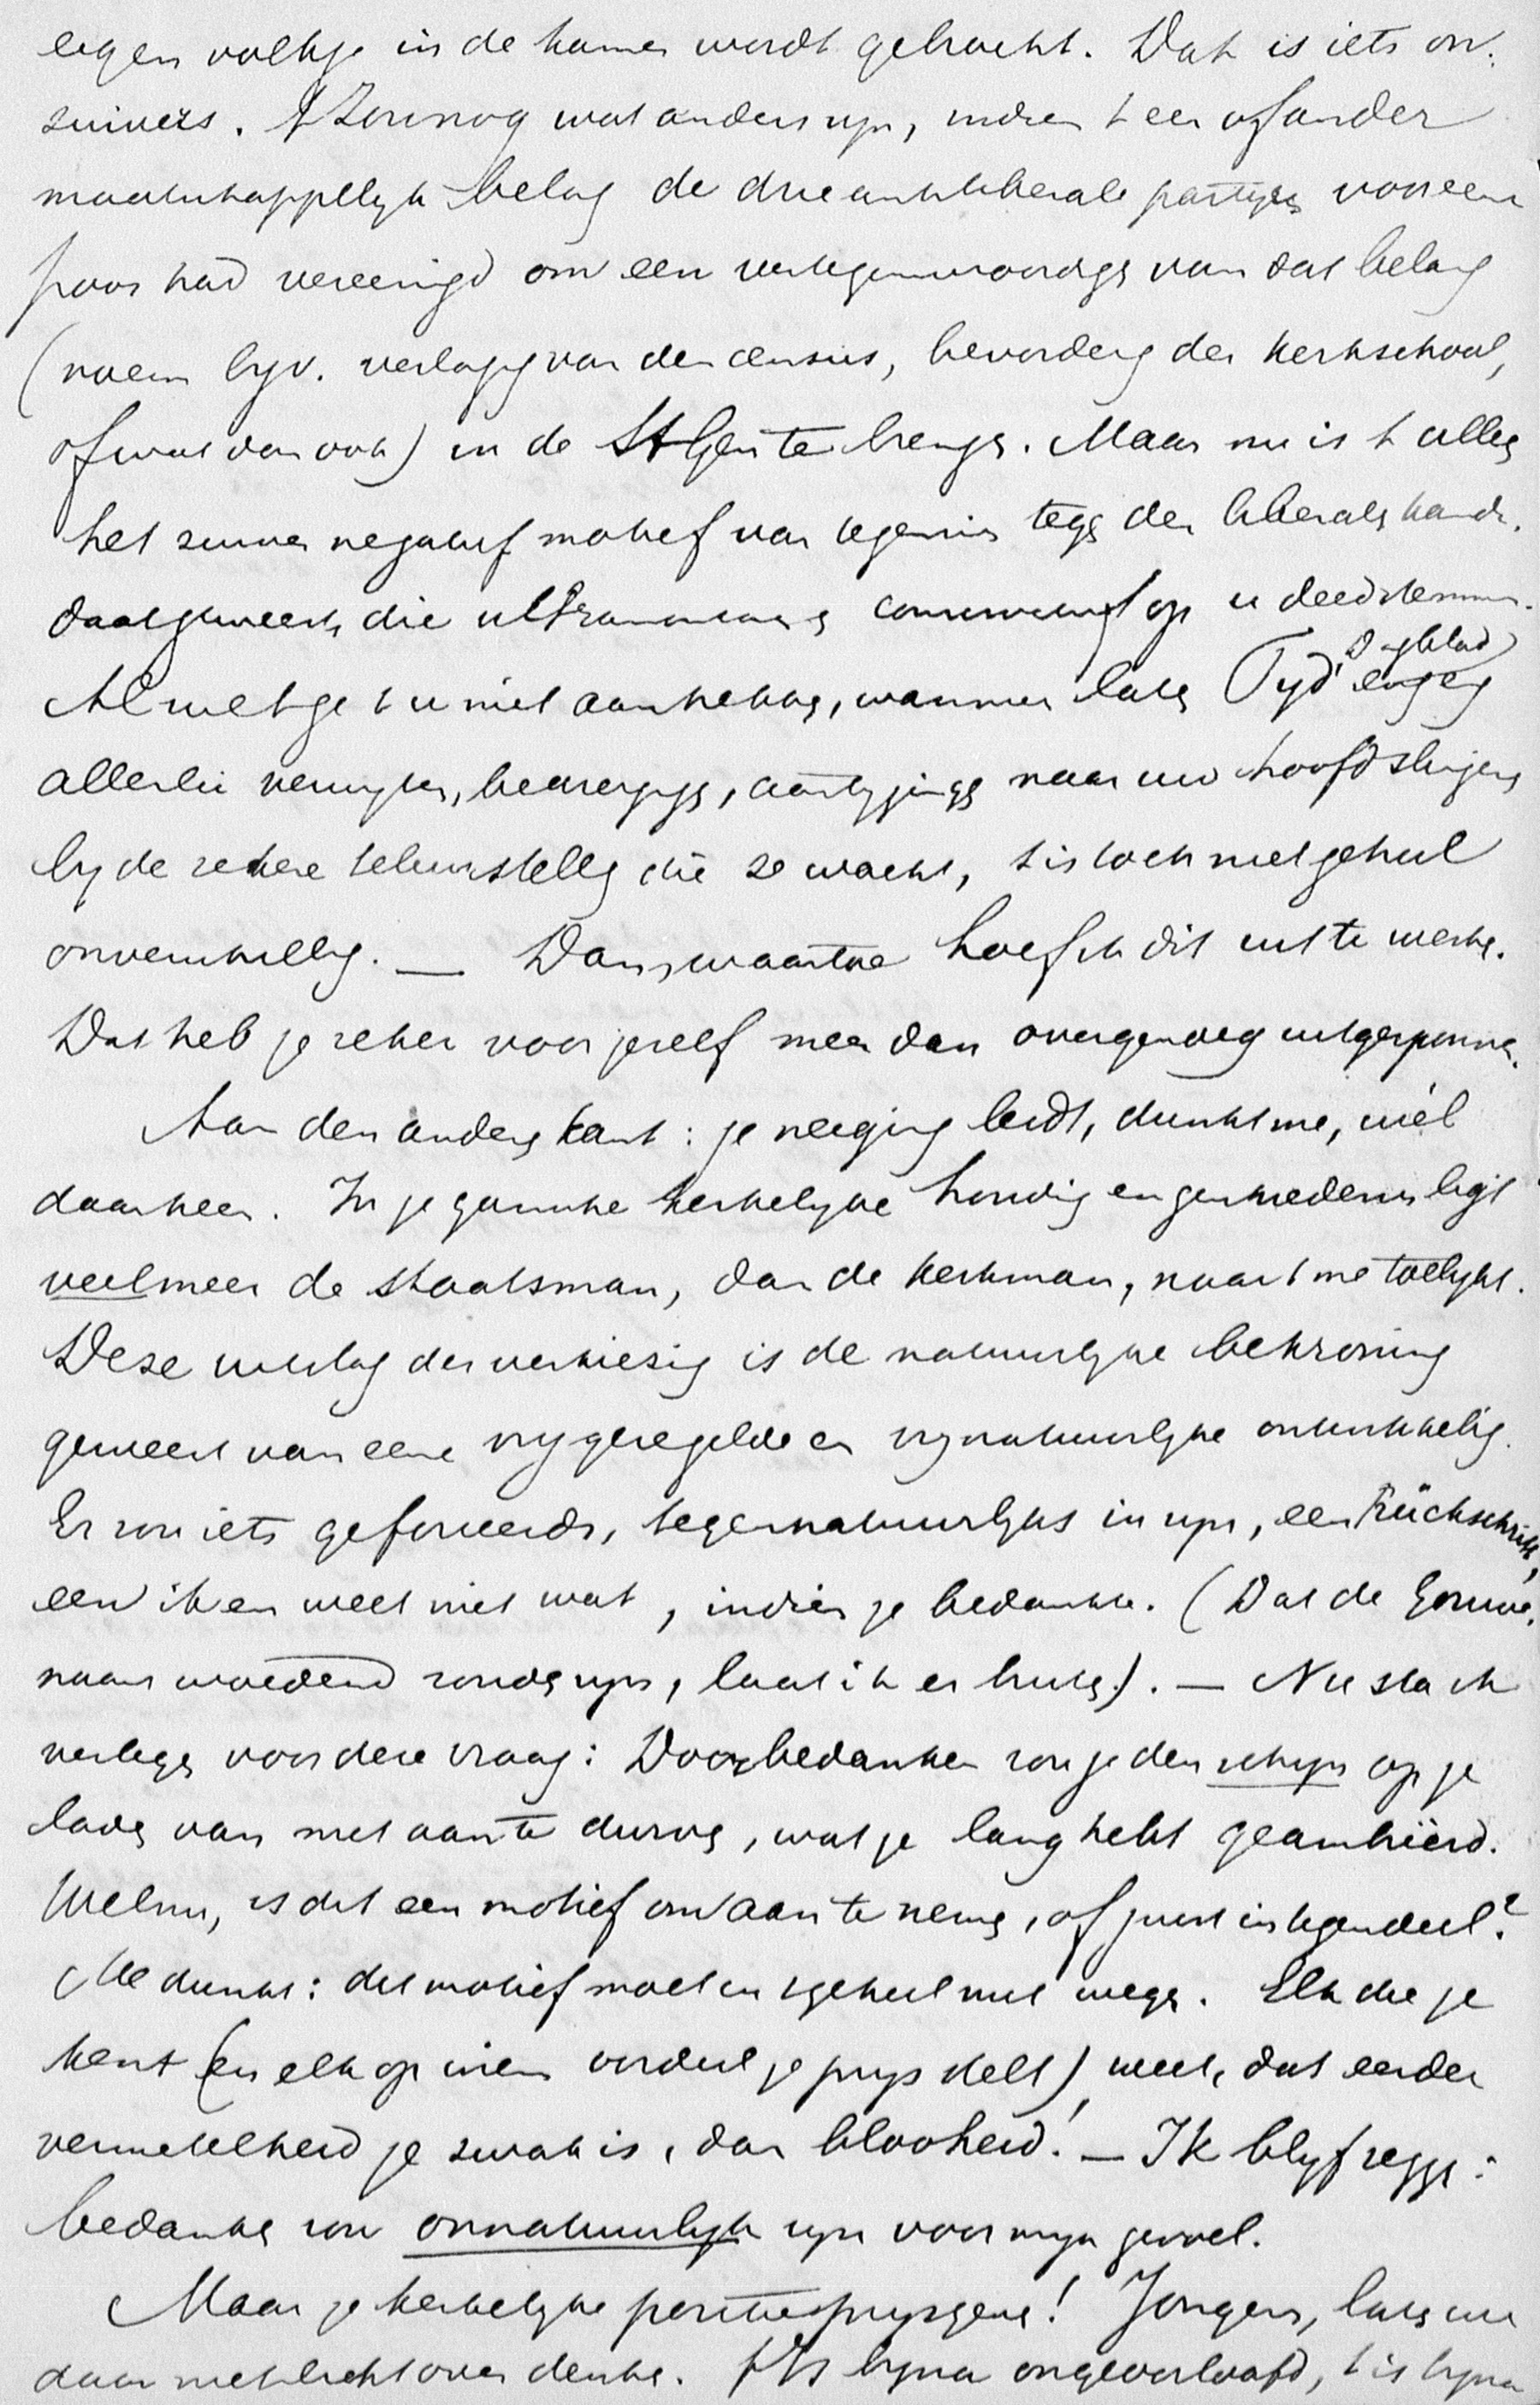 eigen volkje in de kamer wordt gebracht. Dat is iets on-
zuivers. 't Zou nog wat anders zijn, indien 't een of ander
maatschappelijk belang de drie antiliberale partijen voor een
poos had vereenigd om een vertegenwoordiger van dat belang
(noem bijv. verlaging van den census, bevordering der kerkschool,
of wat dan ook) in de St Gen te brengen. Maar nu is 't alleen
het zuiver negatief motief van tegenzin tegen den liberalen kandi-
daat geweest, die ultramontaans en conservatief op u deed stemmen.
Al zult ge 't u niet aantrekken, wanneer later Tijd, Dagblad en gez
allerlei verwijten, beweringen, aantijgingen naar uw hoofd slingeren
bij de zekere teleurstelling die ze wacht, 't is toch niet geheel
onverschillig. — Dan, waartoe hoef ik dit uit te werken.
Dat heb je zeker voor jezelf meer dan overgenoeg uitgesponnen.
Aan den anderen kant: je neiging leidt, dunkt me, viel
daarheen. In je gansche kerkelijke houding en geschiedenis ligt
veel meer de staatsman, dan de kerkman, naar 't me toelijkt.
Deze uitslag der verkiezing is de natuurlijke bekroning
geweest van eene vrij geregelde en vrij natuurlijke ontwikkeling.
Er zou iets geforceerds, tegennatuurlijks in zijn, een Rückschritt,
een ik en weet niet wat, indien je bedankte. (Dat de Gouwe-
naars woedend zouden zijn, laat ik er buiten). — Nu sta ik
verlegen voor deze vraag: Door bedanken zou je den schijn op je
laden van niet aan te durven, wat je lang hebt geambieerd.
Welnu, is dit een motief om aan te nemen, of juist integendeel?
Me dunkt: dit motief moet in 't geheel niet wegen. Elk die je
kent (en elk op wiens oordeel je prijs stelt), weet, dat eerder
vermetelheid je zwak is, dan blooheid! — Ik blijf zeggen:
bedanken zou onnatuurlijk zijn voor mijn gevoel.
Maar je kerkelijke positie prijsgeven! Jongen, laten we
daar niet licht over denken. 't Is bijna ongeoorloofd, 't is bijna